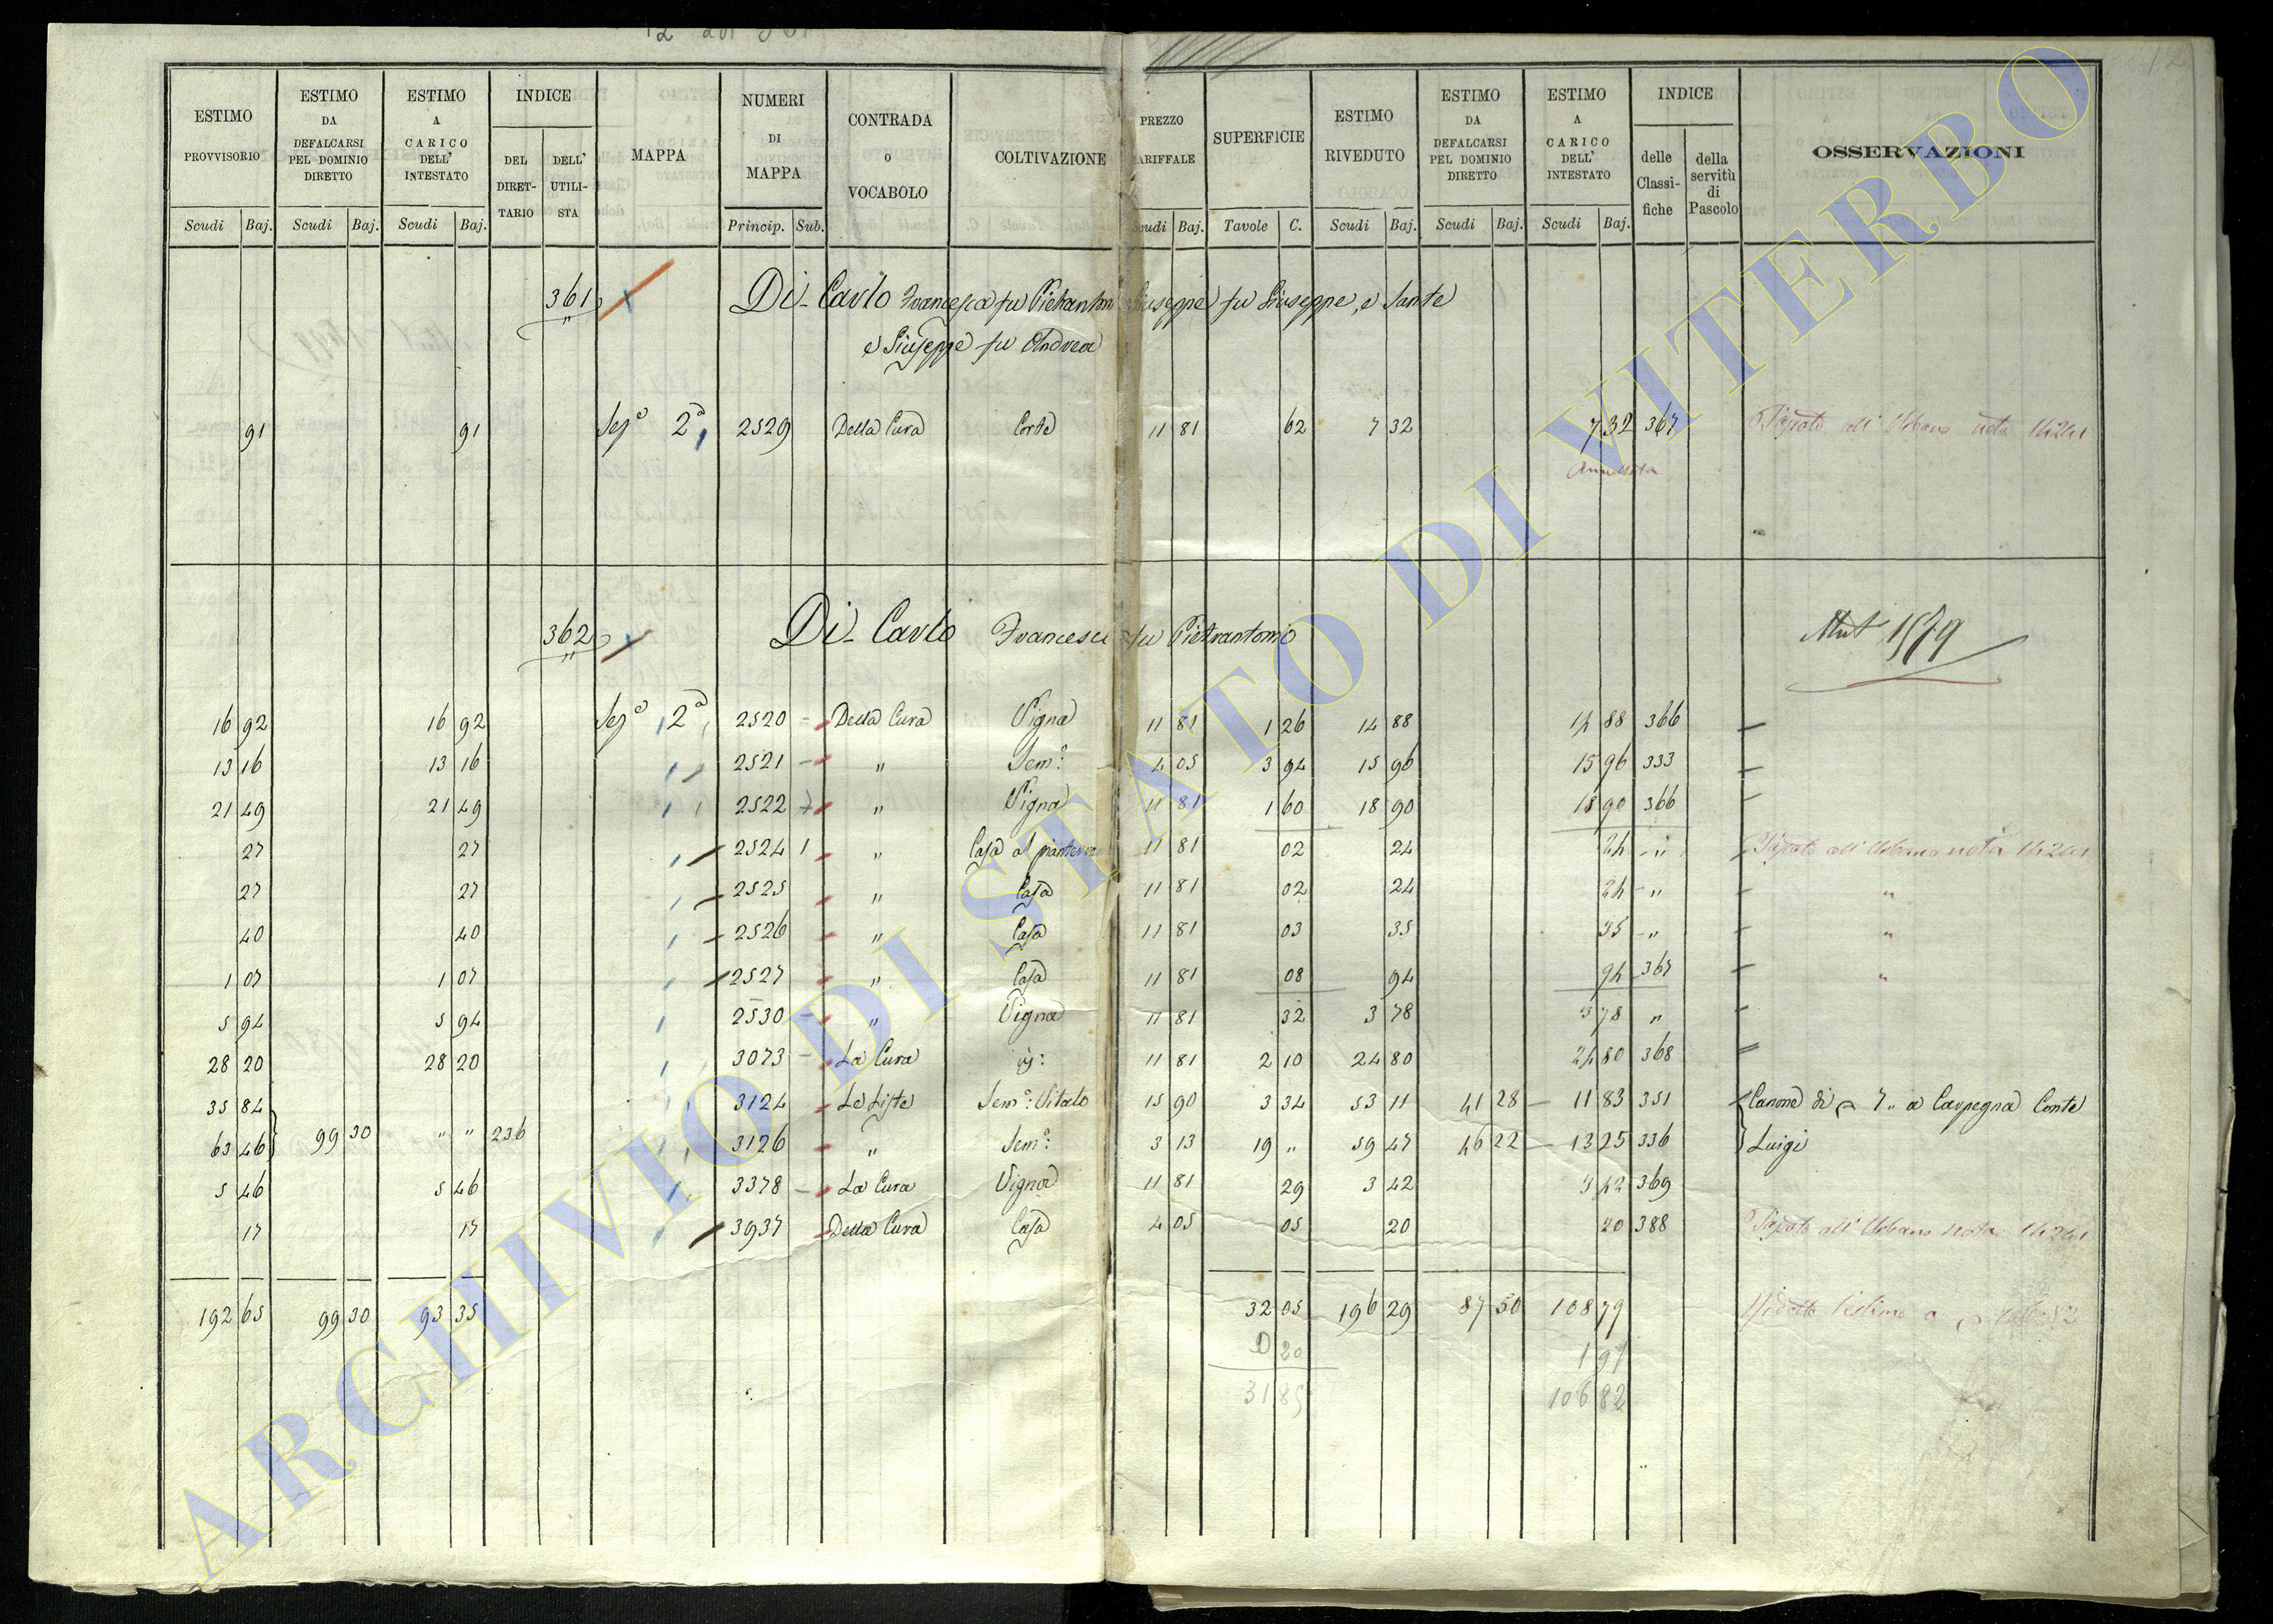 ESTIMO PROVVISORIO | ESTIMO DA DEFALCARSI PEL DOMINIO DIRETTO | ESTIMO A CARICO DELL' INTESTATO | INDICE DEL DIRETTARIO | DELL' UTILISTA | MAPPA | NUMERI DI MAPPA | CONTRADA O VOCABOLO | COLTIVAZIONE | PREZZO ARIFFALE | SUPERFICIE | ESTIMO RIVEDUTO | ESTIMO DA DEFALCARSI PEL DOMINIO DIRETTO | ESTIMO A CARICO DELL' INTESTATO | INDICE delle Classifiche | della servitù di Pascolo | OSSERVAZIONI
Scudi | Baj. | Scudi | Baj. | Scudi | Baj. | Princip. | Sub. | Scudi | Baj. | Tavole | C. | Scudi | Baj. | Scudi | Baj. | Scudi | Baj.
361 Di-Carlo Francesco fu Pietrantonio Giuseppe fu Giuseppe, e Sante
e Giuseppe fu Andrea
91 | 91 | Sezº 2ª | 2529 | Della Cura | Corte | 11 81 | 62 | 7 32 | 7 32 | 367 | Passato all' Urbano nota 14241
Annullata
362 Di-Carlo Francesco fu Pietrantonio Mut 1579
16 92 | 16 92 | Sezº 2ª | 2520 | Della Cura | Vigna | 11 81 | 1 26 | 14 88 | 14 88 | 366
13 16 | 13 16 | 2521 | " | Semº: | 4 05 | 3 94 | 15 96 | 15 96 | 333
21 49 | 21 49 | 2522 | " | Vigna | 11 81 | 1 60 | 18 90 | 18 90 | 366
27 | 27 | 2524 1 | " | Casa al pianterra | 11 81 | 02 | 24 | 24 | " | Passato all' Urbano nota 14241
27 | 27 | 2525 | " | Casa | 11 81 | 02 | 24 | 24 | " | "
40 | 40 | 2526 | " | Casa | 11 81 | 03 | 35 | 35 | " | "
1 07 | 1 07 | 2527 | " | Casa | 11 81 | 08 | 94 | 94 | 367 | "
5 94 | 5 94 | 2530 | " | Vigna | 11 81 | 32 | 3 78 | 3 78 | "
28 20 | 28 20 | 3073 | La Cura | 11 81 | 2 10 | 24 80 | 24 80 | 368
35 84 | 3124 | Le Liste | Semº: Vitato | 15 90 | 3 34 | 53 11 | 41 28 | 11 83 | 351 | Canone di 7.. a Carpegna Conte
63 46 | 99 30 | " " | 236 | 3126 | " | Semº: | 3 13 | 19 " | 59 47 | 46 22 | 13 25 | 336 | Luigi
5 46 | 5 46 | 3378 | La Cura | Vigna | 11 81 | 29 | 3 42 | 3 42 | 369
17 | 17 | 3937 | Della Cura | Casa | 4 05 | 05 | 20 | 20 | 388 | Passato all' Urbano nota 14241
192 65 | 99 30 | 93 35 | 32 05 | 196 29 | 87 50 | 108 79 | Ridotto l'estimo a 106 82
0 20 | 1 97
31 85 | 106 82
ARCHIVIO DI STATO DI VITERBO